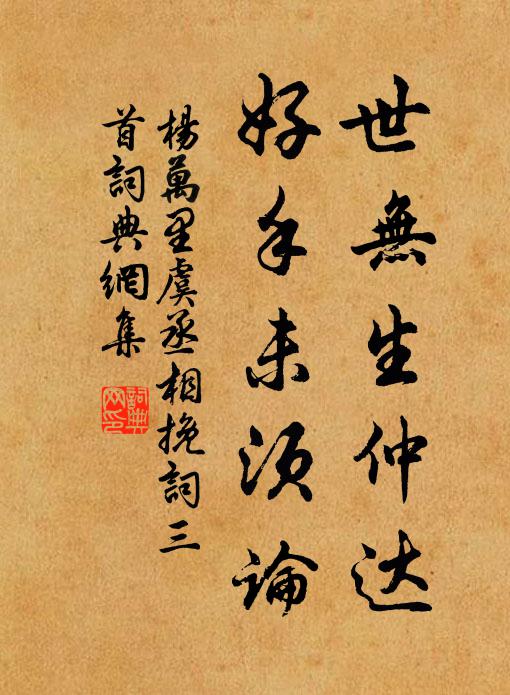 世無生仲达
好手未須論
楊萬里虞丞相挽詞三
首詞典網集
詞典
网印